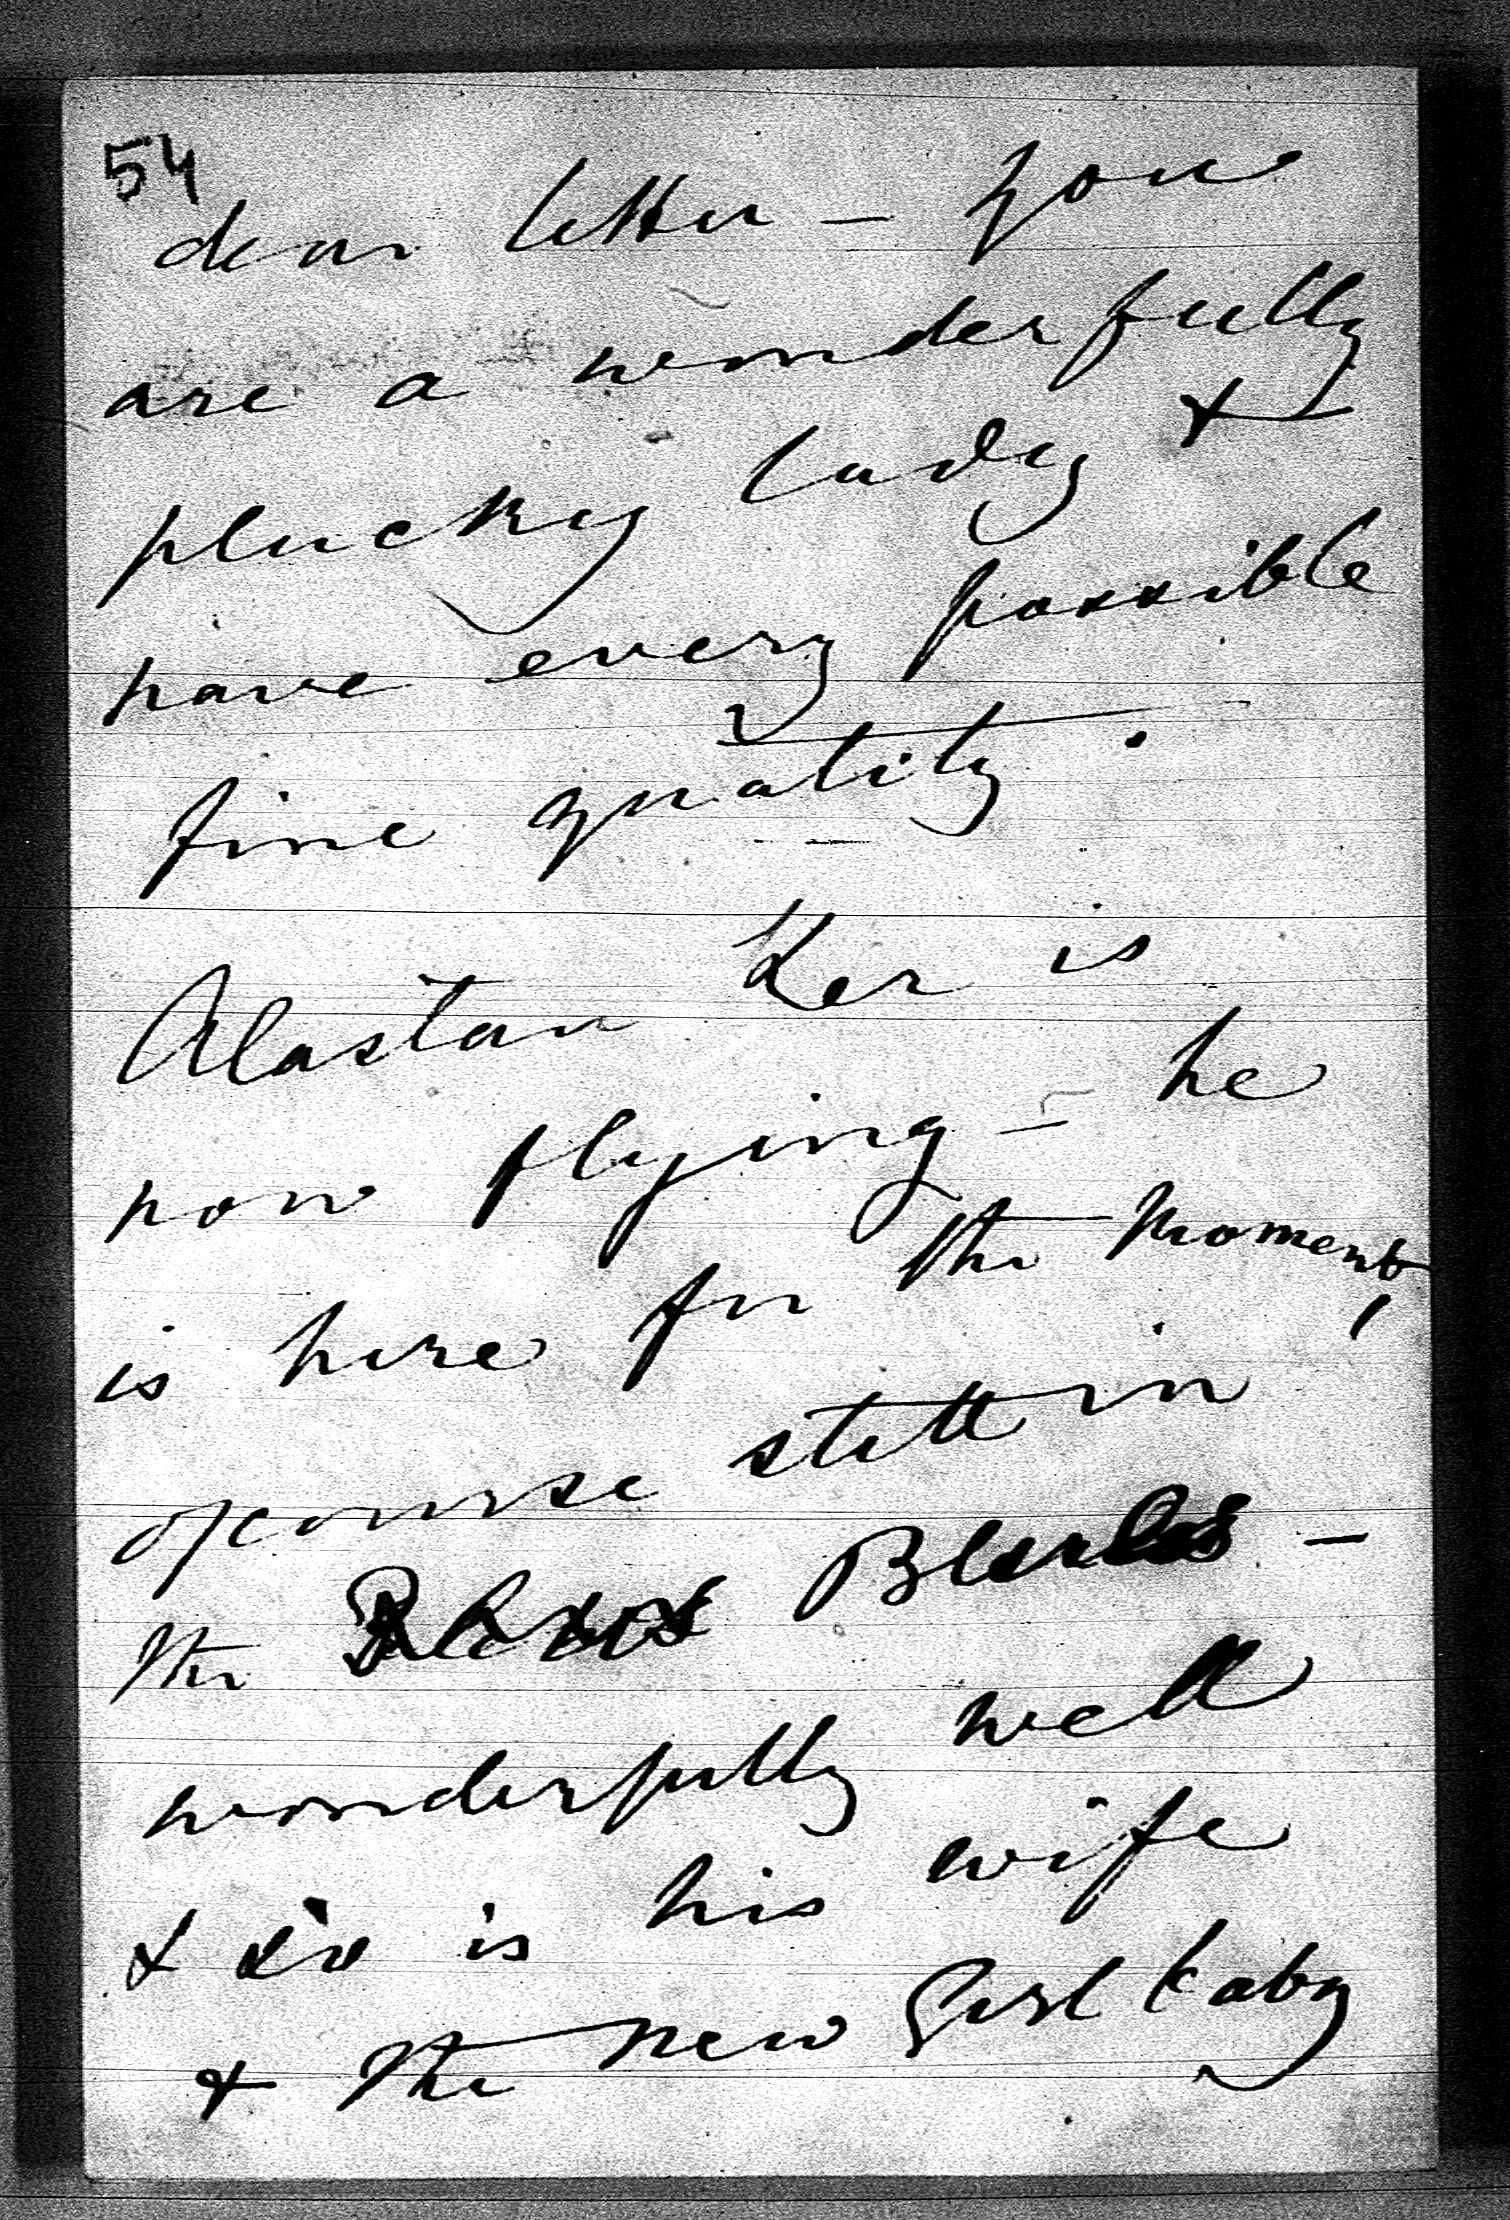 54
dear letter – you
are a wonderfully
plucky lady &
have every possible
fine quality.
Alastair Ker is
now flying – he
is here for the moment,
of course still in
the Blues –
wonderfully well
& so is his wife
& the new Girl baby